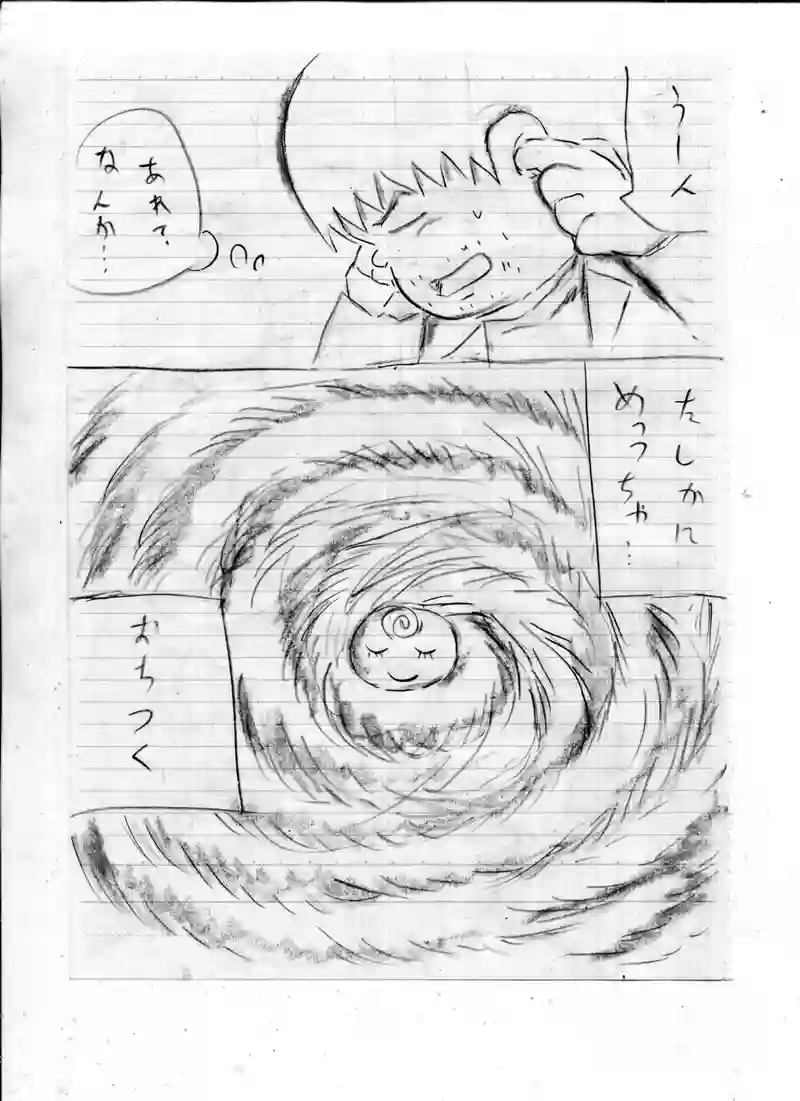 うーん
あれ?
なんか…
たしかに
めっつちゃ…
おちつく